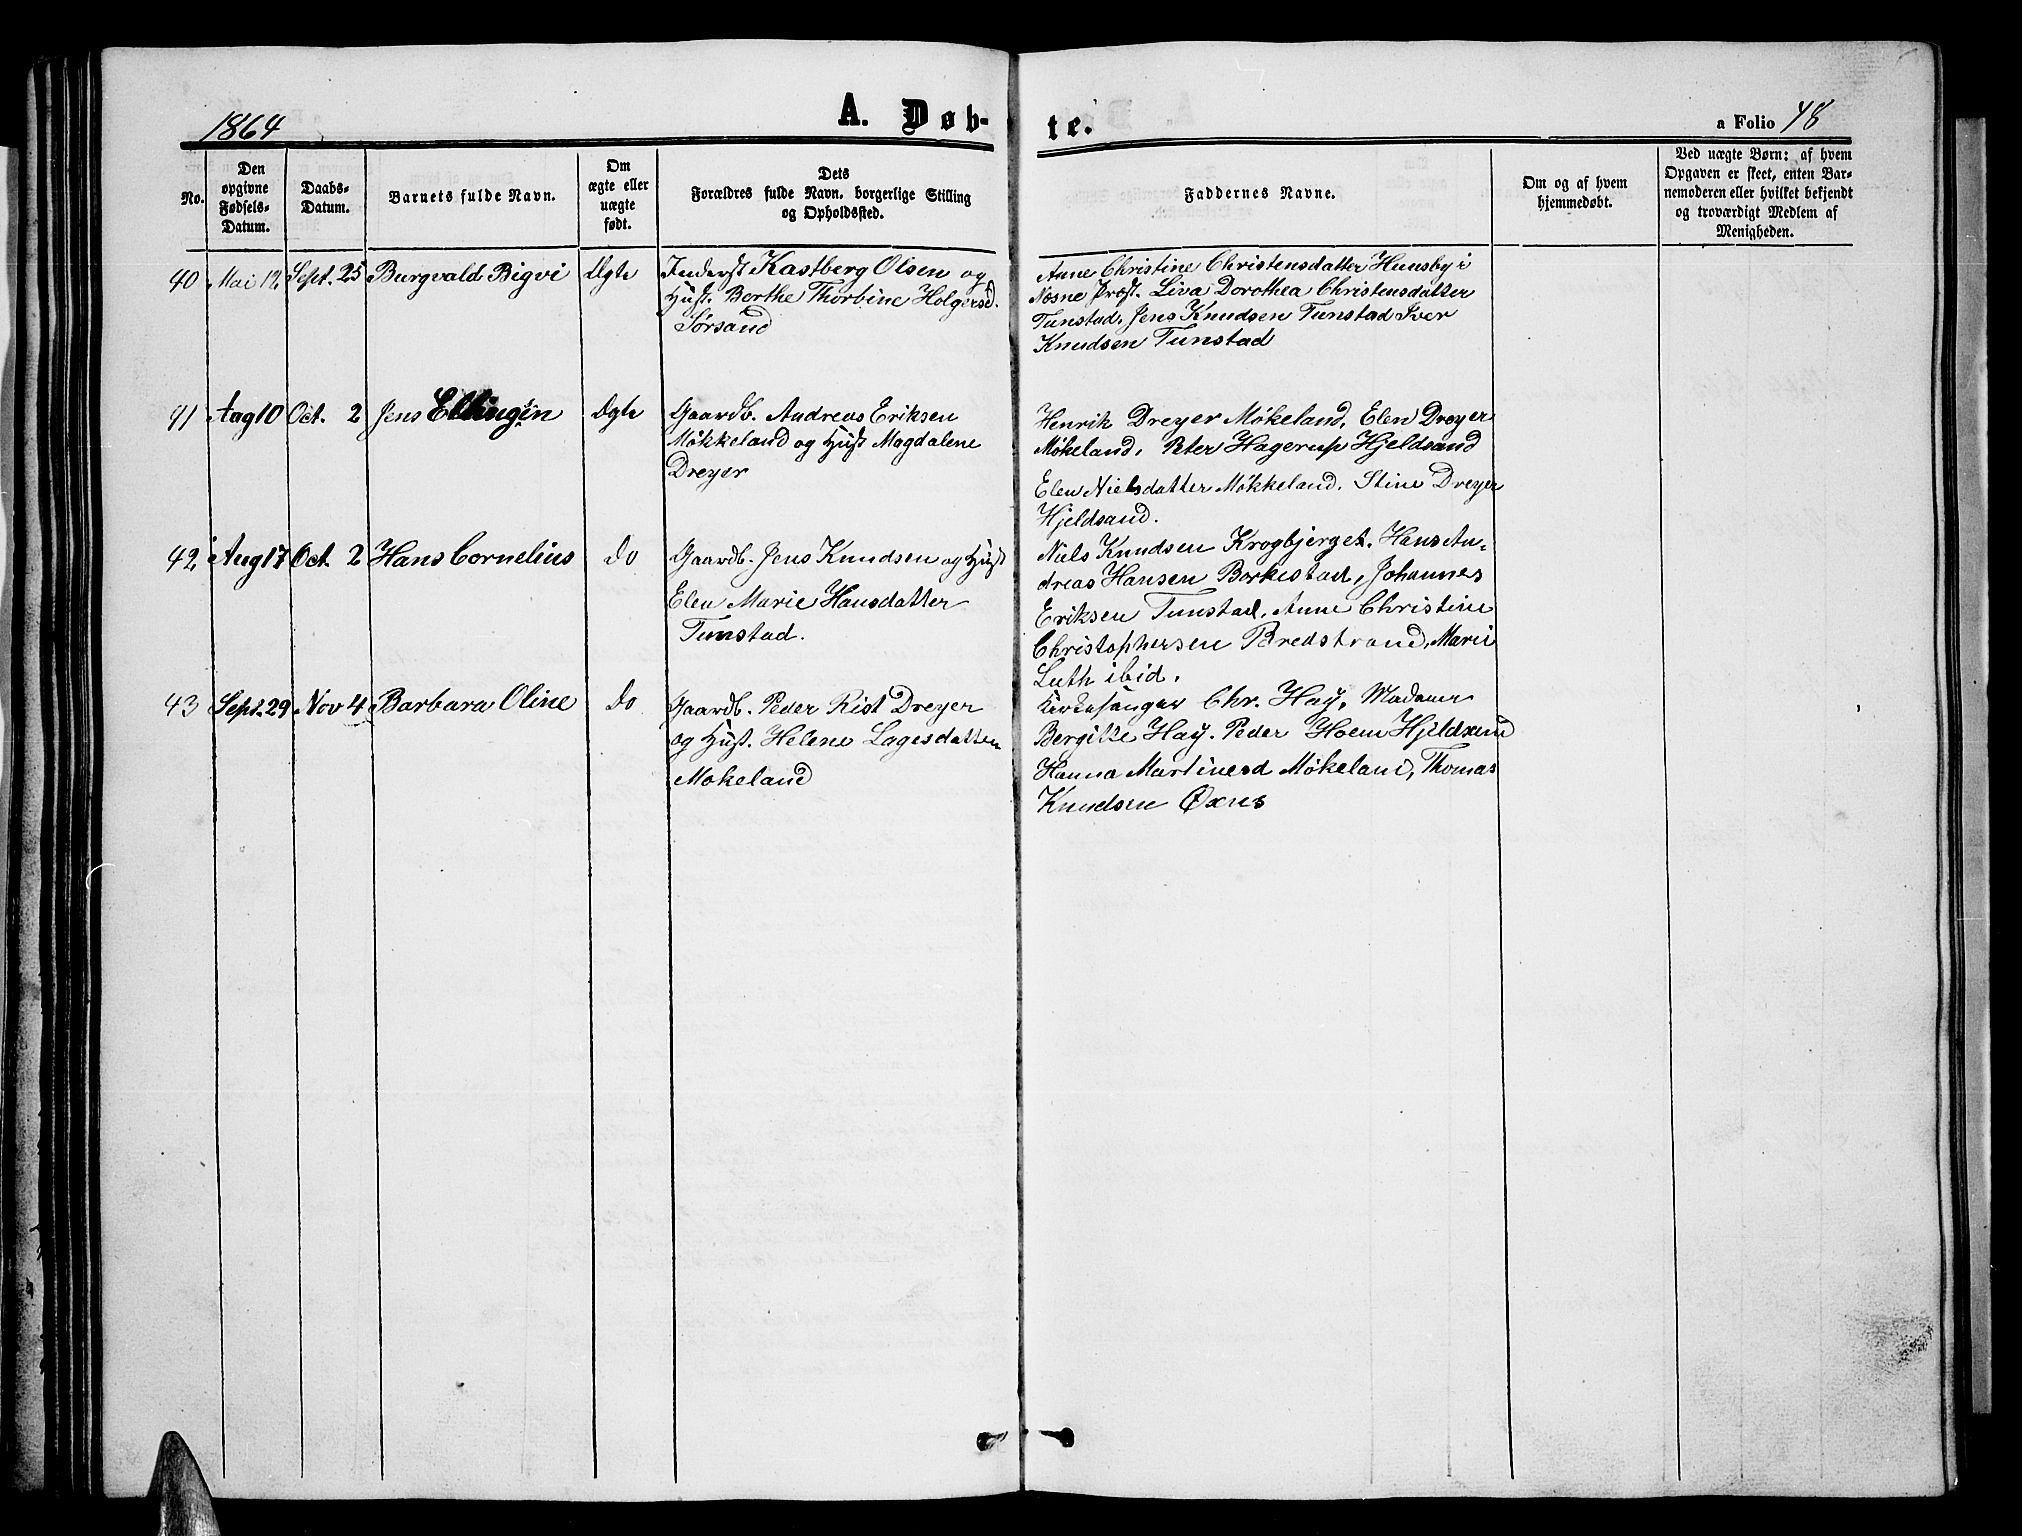 1864
A. Døb-
te.
a Folio 48
No.
Den opgivne Fødsels-Datum.
Daabs-Datum.
Barnets fulde Navn.
Om ægte eller uægte født.
Dets Forældres fulde Navn, borgerlige Stilling og Opholdssted.
Faddernes Navne.
Om og af hvem hjemmedøbt.
Ved uægte Børn: af hvem Opgaven er skeet, enten Barnemoderen eller hvilket bekjendt og troværdigt Medlem af Menigheden.
40 Mai 12 Sept. 25 Burgvald Bigvi Ægte
Inderst Kastberg Olsen og
Hust. Berthe Thorbine Holgersd.
Sørsand
Anne Christine Christensdatter Hunsby i
Næsne Præst. Liva Dorothea Christensdatter
Tunstad, Jens Knudsen Tunstad Iver
Knudsen Tunstad
41 Aug 10 Oct. 2 Jens Ellingsen Ægte
Gaardb. Andreas Eriksen
Møkkeland og Hust Magdalene
Dreyer
Henrik Dreyer Møkeland, Elen Dreyer
Møkeland, Peter Hagerup Hjeldsand
Elen Nielsdatter Møkkeland. Stine Dreyer
Hjeldsand.
42 Aug 17 Oct. 2 Hans Cornelius Do
Gaardb. Jens Knudsen og Hust
Elen Marie Hansdatter
Tunstad.
Niels Knudsen Krogbjerget. Hans An-
dreas Hansen Borkestad, Johannes
Eriksen Tunstad, Anne Christine
Christophersen Bredstrand, Marie
Luth ibid.
43 Sept. 29 Nov 4 Barbara Oline Do
Gaardb. Peder Rist Dreyer
og Hust. Helene Lagesdatter
Møkeland
Kirkesanger Chr. Hay, Madame
Bergitte Hay. Peder Hoem Hjeldsand
Hanna Martinesd Møkeland, Thomas
Knudsen Øxnes